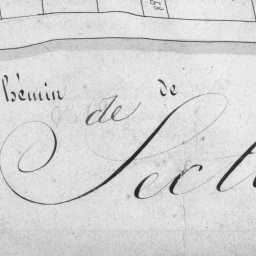 hemin de
de
Sect